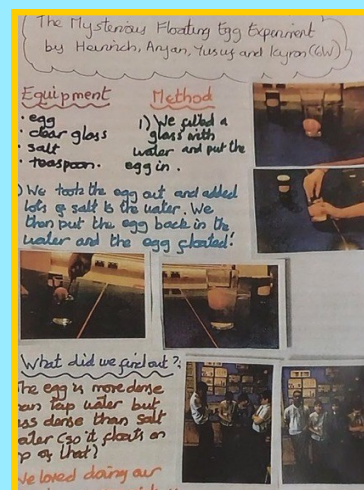 The Mysterious Floating Egg Experiment
by Heinrich, Anyan, Yusuf and Kyron (6W)
Equipment
• egg
• clear glass
• salt
• teaspoon.
Method
1) We filled a
glass with
water and put the
egg in.
) We took the egg out and added
lots of salt to the water. We
then put the egg back in the
water and the egg floated!
What did we find out?
he egg is more dense
an tap water but
ss dense than salt
ater (so it floats on
p of that)
We loved doing our